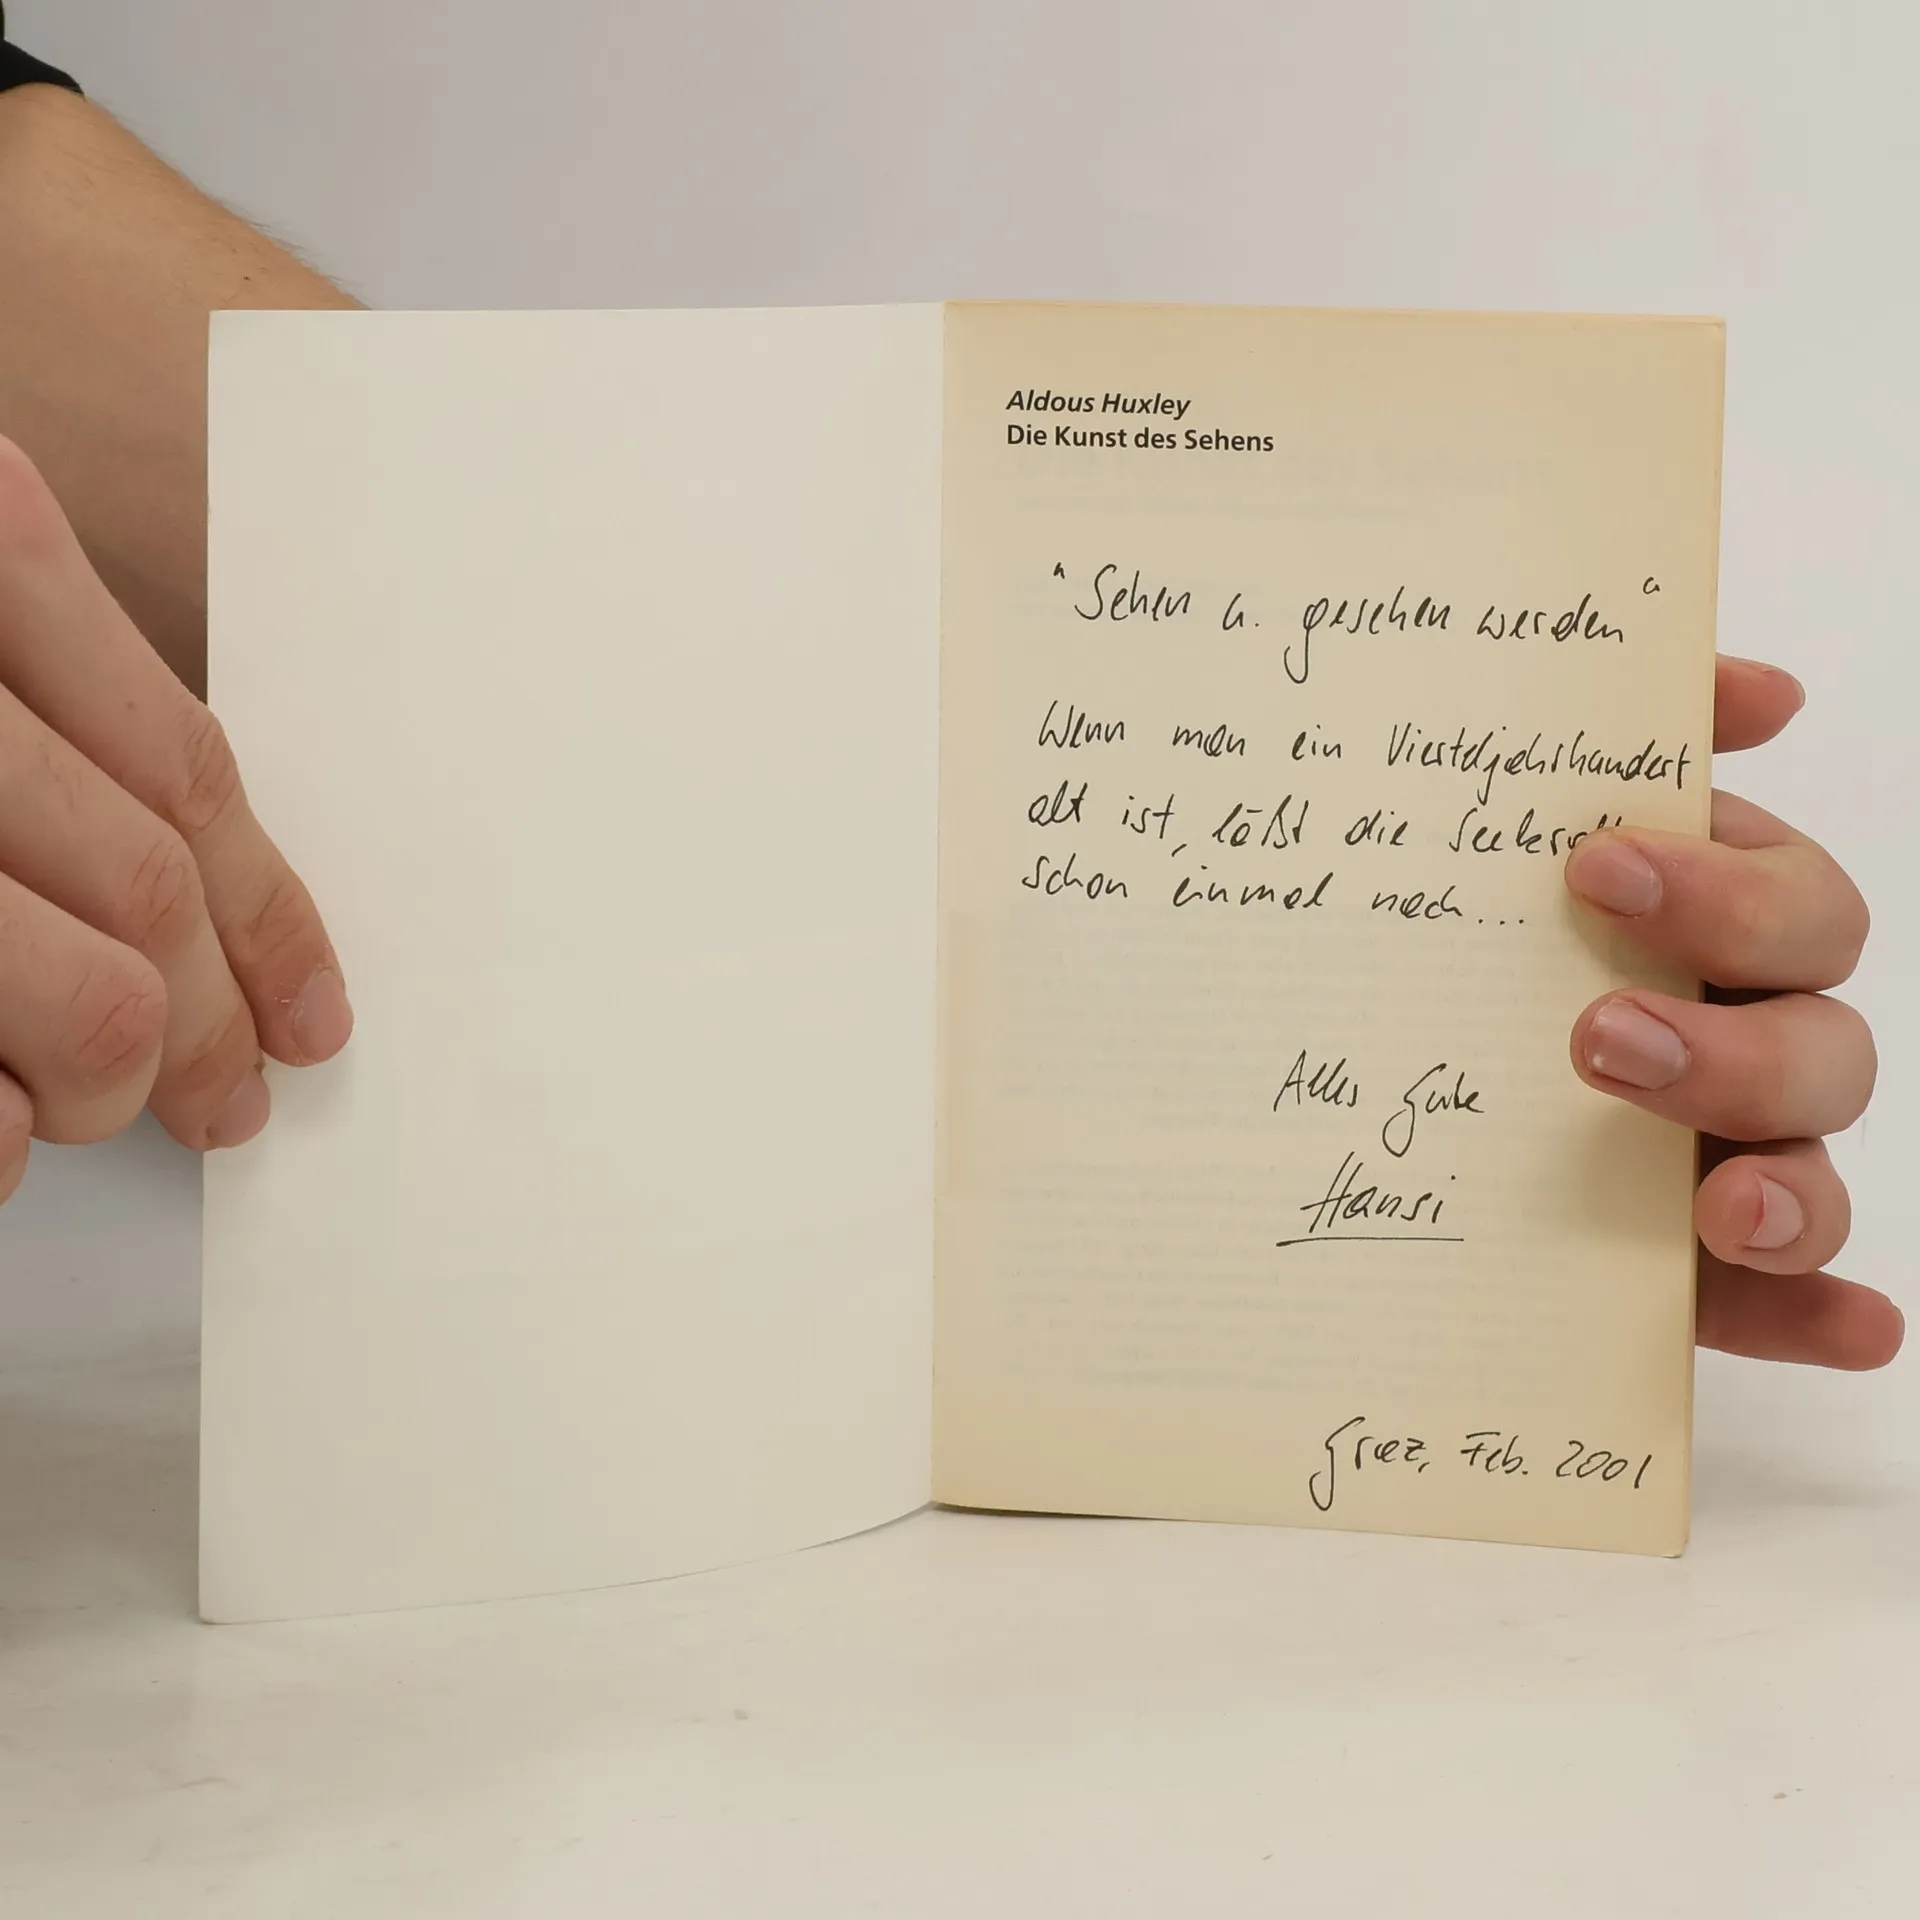 Aldous Huxley
Die Kunst des Sehens
"Sehen u. gesehen werden"
Wenn man ein Vierteljahrhundert
alt ist, läßt die
schon einmal nach...
Alles Gute
Hansi
Graz, Feb. 2001